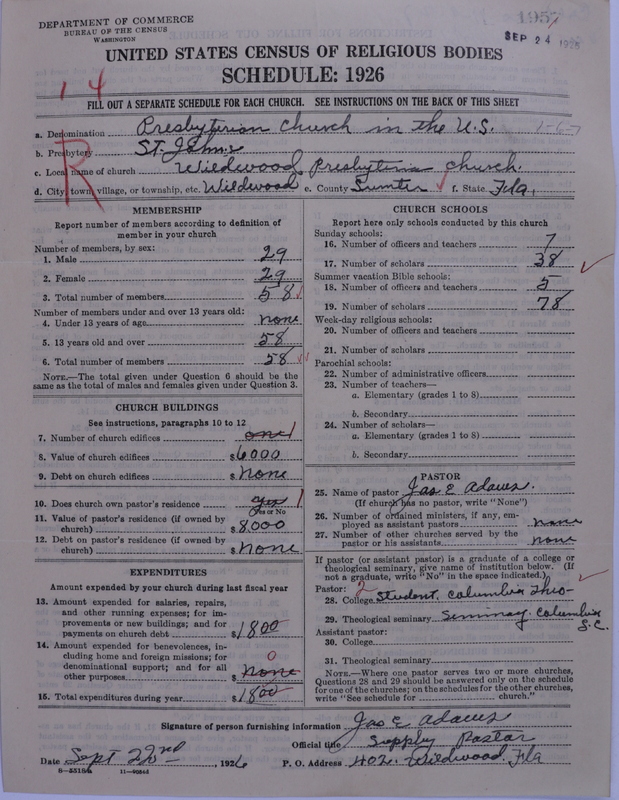 DEPARTMENT OF COMMERCE
BUREAU OF THE CENSUS
WASHINGTON
195
SEP 24 1926
UNITED STATES CENSUS OF RELIGIOUS BODIES
SCHEDULE: 1926
14
FILL OUT A SEPARATE SCHEDULE FOR EACH CHURCH. SEE INSTRUCTIONS ON THE BACK OF THIS SHEET
R
a. Denomination Presbyterian Church in the U.S. 1-6-7
b. Presbytery St. Johns
c. Local name of church Wildwood Presbyterian Church.
d. City, town, village, or township, etc. Wildwood e. County Sumter f. State Fla.
MEMBERSHIP
Report number of members according to definition of
member in your church
Number of members, by sex:
1. Male 29
2. Female 29
3. Total number of members 58
Number of members under and over 13 years old:
4. Under 13 years of age none
5. 13 years old and over 58
6. Total number of members 58
NOTE.—The total given under Question 6 should be the
same as the total of males and females given under Question 3.
CHURCH BUILDINGS
See instructions, paragraphs 10 to 12
7. Number of church edifices one 1
8. Value of church edifices $6000
9. Debt on church edifices $ None
10. Does church own pastor's residence yes 1
Yes or No
11. Value of pastor's residence (if owned by
church) $ 8.000
12. Debt on pastor's residence (if owned by
church) $ None
EXPENDITURES
Amount expended by your church during last fiscal year
13. Amount expended for salaries, repairs,
and other running expenses; for im-
provements or new buildings; and for
payments on church debt $1800
14. Amount expended for benevolences, in-
cluding home and foreign missions; for
denominational support; and for all
other purposes $ None 0
15. Total expenditures during year $1800
CHURCH SCHOOLS
Report here only schools conducted by this church
Sunday schools:
16. Number of officers and teachers 7
17. Number of scholars 38
Summer vacation Bible schools:
18. Number of officers and teachers 5
19. Number of scholars 78
Week-day religious schools:
20. Number of officers and teachers
21. Number of scholars
Parochial schools:
22. Number of administrative officers
23. Number of teachers—
a. Elementary (grades 1 to 8)
b. Secondary
24. Number of scholars—
a. Elementary (grades 1 to 8)
b. Secondary
PASTOR
25. Name of pastor Jas E Adams.
(If church has no pastor, write "None")
26. Number of ordained ministers, if any, em-
ployed as assistant pastors none
27. Number of other churches served by the
pastor or his assistants none
If pastor (or assistant pastor) is a graduate of a college or
theological seminary, give name of institution below. (If
not a graduate, write "No" in the space indicated.)
Pastor: 2
28. College Student. Columbia Theo-
29. Theological seminary Seminary Columbia S.C.
Assistant pastor:
30. College
31. Theological seminary
NOTE.—Where one pastor serves two or more churches,
Questions 28 and 29 should be answered only on the schedule
for one of the churches; on the schedules for the other churches,
write "See schedule for church."
Signature of person furnishing information Jas E Adams
Official title Supply Pastor
Date Sept 22nd, 1926 P. O. Address 402. Wildwood, Fla
8-5518a 11-9084a